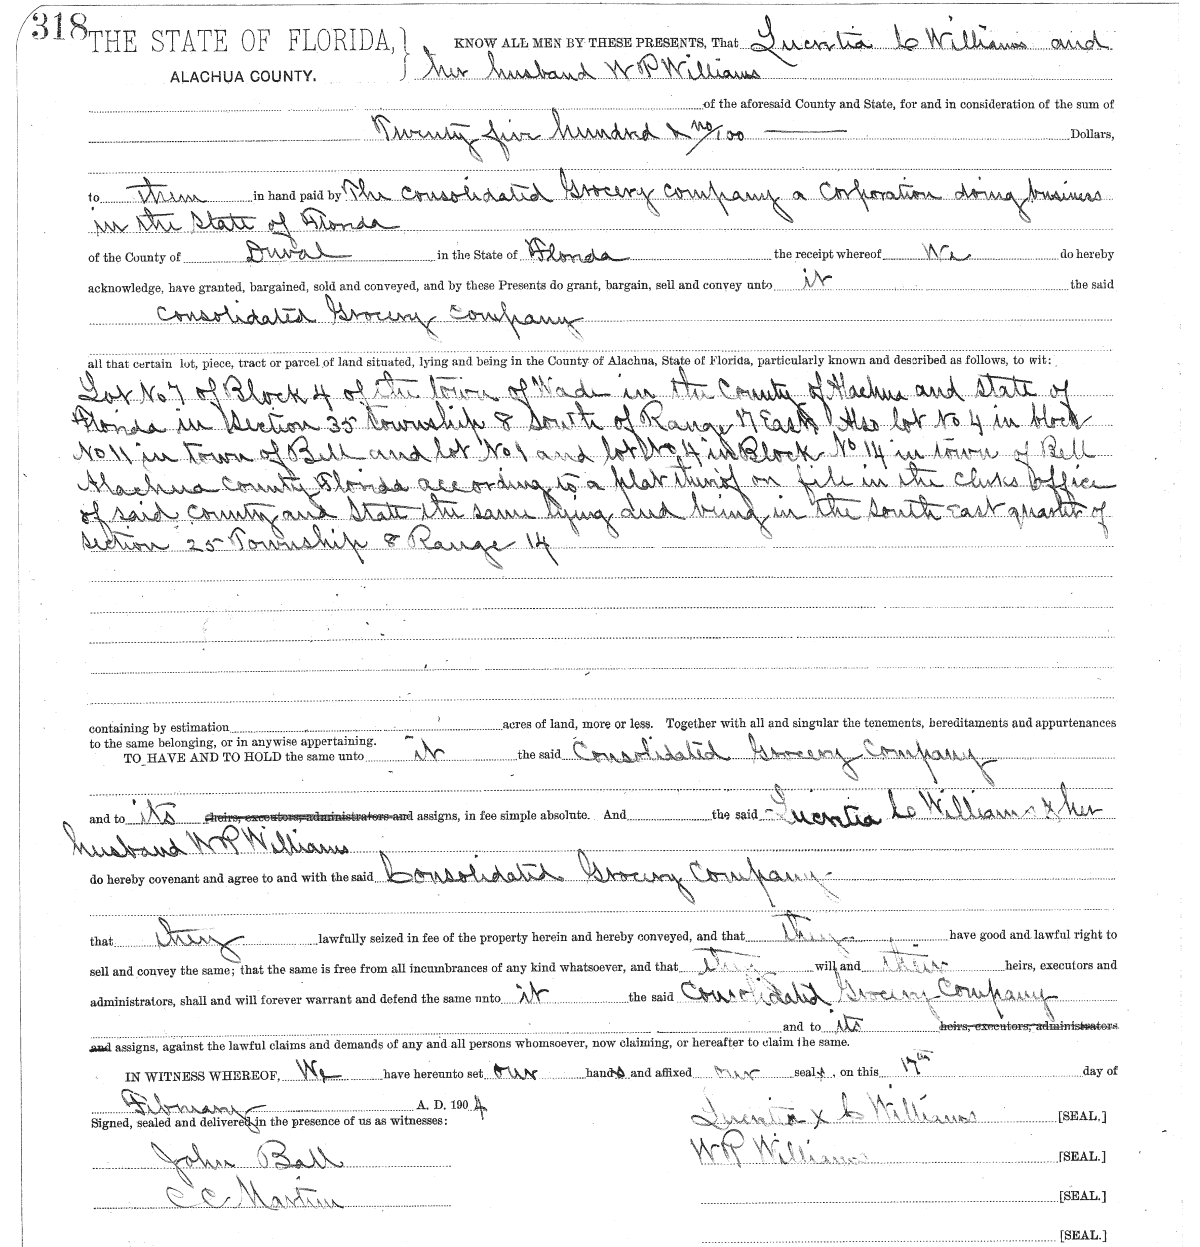 318
THE STATE OF FLORIDA,
ALACHUA COUNTY.
KNOW ALL MEN BY THESE PRESENTS, That Lucretia C Williams and
her husband W P Williams
of the aforesaid County and State, for and in consideration of the sum of
Twenty five hundred & no/100 Dollars,
to them in hand paid by The Consolidated Grocery Company a Corporation doing business
in the State of Florida
of the County of Duval in the State of Florida the receipt whereof We do hereby
acknowledge, have granted, bargained, sold and conveyed, and by these Presents do grant, bargain, sell and convey unto it the said
Consolidated Grocery Company
all that certain lot, piece, tract or parcel of land situated, lying and being in the County of Alachua, State of Florida, particularly known and described as follows, to wit:
Lot No 7 of Block 4 of the town of Wade in the County of Alachua and State of
Florida in Section 35 Township 8 South of Range 17 East Also lot No 4 in block
No 11 in town of Bell and lot No 1 and lot No 4 in Block No 14 in town of Bell
Alachua County Florida according to a plat thereof on file in the clerks office
of said County and State the same lying and being in the South East quarter of
Section 25 Township 8 Range 14
containing by estimation acres of land, more or less. Together with all and singular the tenements, hereditaments and appurtenances
to the same belonging, or in anywise appertaining.
TO HAVE AND TO HOLD the same unto it the said Consolidated Grocery Company
and to its heirs, executors, administrators and assigns, in fee simple absolute. And the said Lucretia C Williams & her
husband W P Williams
do hereby covenant and agree to and with the said Consolidated Grocery Company
that they lawfully seized in fee of the property herein and hereby conveyed, and that they have good and lawful right to
sell and convey the same; that the same is free from all incumbrances of any kind whatsoever, and that they will and their heirs, executors and
administrators, shall and will forever warrant and defend the same unto it the said Consolidated Grocery Company
and to its heirs, executors, administrators
and assigns, against the lawful claims and demands of any and all persons whomsoever, now claiming, or hereafter to claim the same.
IN WITNESS WHEREOF, We have hereunto set our hands and affixed our seals, on this 17th day of
February A. D. 1904
Signed, sealed and delivered in the presence of us as witnesses:
Lucretia x C Williams [SEAL.]
John Ball
W P Williams [SEAL.]
C C Martin
[SEAL.]
[SEAL.]